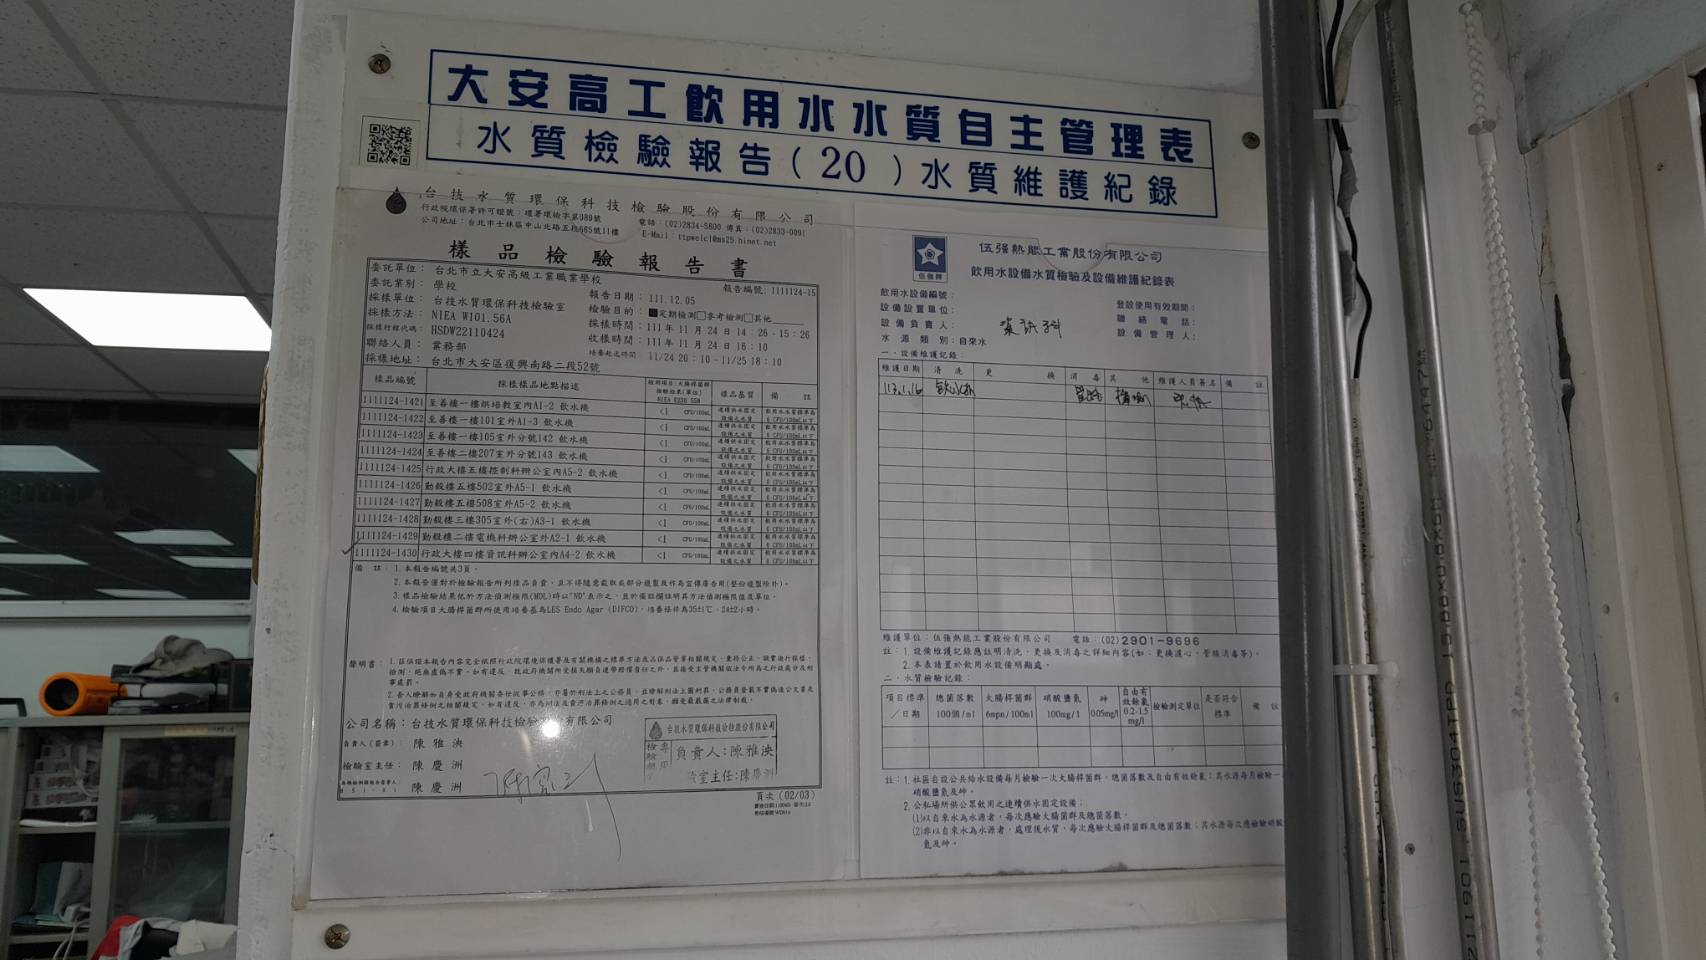 大安高工飲用水水質自主管理表
水質檢驗報告(20)水質維護紀錄
台技水質環保科技檢驗股份有限公司
行政院環保署許可證號：環署環檢字第089號
電話：(02)2834-5800 傳真：(02)2833-0091
公司地址：台北市士林區中山北路五段665號11樓
E-Mail：ttpwelcl@ms25.hinet.net
樣品檢驗報告書
報告編號：1111124-15
委託單位：台北市立大安高級工業職業學校
委託業別：學校
報告日期：111.12.05
採樣單位：台技水質環保科技檢驗室
檢驗目的：■定期檢測□參考檢測□其他
採樣方法：NIEA W101.56A
採樣時間：111年11月24日14:26-15:26
採樣行程代碼：HSDW22110424
收樣時間：111年11月24日16:10
聯絡人員：業務部
培養起迄時間 11/24 20:10-11/25 18:10
採樣地址：台北市大安區復興南路二段52號
樣品編號 採樣樣品地點描述 檢測項目:大腸桿菌群 檢驗結果(單位) NIEA E230.55B 樣品基質 備註
1111124-1421 至善樓一樓烘培教室內A1-2 飲水機 <1 CFU/100mL 連續供水固定設備之水質 飲用水水質標準為6 CFU/100mL以下
1111124-1422 至善樓一樓101室外A1-3 飲水機 <1 CFU/100mL 連續供水固定設備之水質 飲用水水質標準為6 CFU/100mL以下
1111124-1423 至善樓一樓105室外分號142 飲水機 <1 CFU/100mL 連續供水固定設備之水質 飲用水水質標準為6 CFU/100mL以下
1111124-1424 至善樓二樓207室外分號143 飲水機 <1 CFU/100mL 連續供水固定設備之水質 飲用水水質標準為6 CFU/100mL以下
1111124-1425 行政大樓五樓控制科辦公室內A5-2 飲水機 <1 CFU/100mL 連續供水固定設備之水質 飲用水水質標準為6 CFU/100mL以下
1111124-1426 勤毅樓五樓502室外A5-1 飲水機 <1 CFU/100mL 連續供水固定設備之水質 飲用水水質標準為6 CFU/100mL以下
1111124-1427 勤毅樓五樓508室外A5-2 飲水機 <1 CFU/100mL 連續供水固定設備之水質 飲用水水質標準為6 CFU/100mL以下
1111124-1428 勤毅樓三樓305室外(右)A3-1 飲水機 <1 CFU/100mL 連續供水固定設備之水質 飲用水水質標準為6 CFU/100mL以下
1111124-1429 勤毅樓二樓電機科辦公室外A2-1 飲水機 <1 CFU/100mL 連續供水固定設備之水質 飲用水水質標準為6 CFU/100mL以下
1111124-1430 行政大樓四樓資訊科辦公室內A4-2 飲水機 <1 CFU/100mL 連續供水固定設備之水質 飲用水水質標準為6 CFU/100mL以下
備註：1.本報告編號共3頁。
2.本報告僅對於檢驗報告所列樣品負責，且不得隨意截取或部分複製及作為宣傳廣告用(整份複製除外)。
3.樣品檢驗結果低於方法偵測極限(MDL)時以"ND"表示之，並於備註欄註明其方法偵測極限值及單位。
4.檢驗項目大腸桿菌群所使用培養基為LES Endo Agar (DIFCO)，培養條件為35±1℃，24±2小時。
聲明書：
公司名稱：台技水質環保科技檢驗 有限公司
負責人(簽章)：陳雅泱
檢驗室主任：陳慶洲
陳慶洲
台技水質環保科技檢驗股份有限公司
負責人：陳雅泱
室主任：陳慶洲
頁次(02/03)
伍強牌
伍強熱能工業股份有限公司
飲用水設備水質檢驗及設備維護紀錄表
飲用水設備編號：
登記使用有效期間：
設備設置單位：
聯絡電話：
設備負責人：資訊科
設備管理人：
水源類別：自來水
一．設備維護記錄：
維護日期 清洗 更換 消毒 其他 維護人員簽名 備註
113.1.16 飲水機
維護單位：伍強熱能工業股份有限公司 電話：(02)2901-9696
註：1.設備維護記錄應註明清洗、更換及消毒之詳細內容(如：更換濾心、管線消毒等)。
2.本表請置於飲用水設備明顯處。
二．水質檢驗記錄：
項目標準／日期 總菌落數 100個/ml 大腸桿菌群 6mpn/100ml 硝酸鹽氮 100mg/l 砷 0.05mg/l 自由有效餘氯 0.2-1.5 mg/l 檢驗測定單位 是否符合標準 備註
註：1.社區自設公共給水設備每月檢驗一次大腸桿菌群、總菌落數及自由有效餘氯；其水源每月檢驗一
硝酸鹽氮及砷。
2.公私場所供公眾飲用之連續供水固定設備：
(1)以自來水為水源者，每次應驗大腸菌群及總菌落數。
(2)非以自來水為水源者，處理後水質，每次應驗大腸桿菌群及總菌落數；其水源每次應檢驗硝酸
氮及砷。